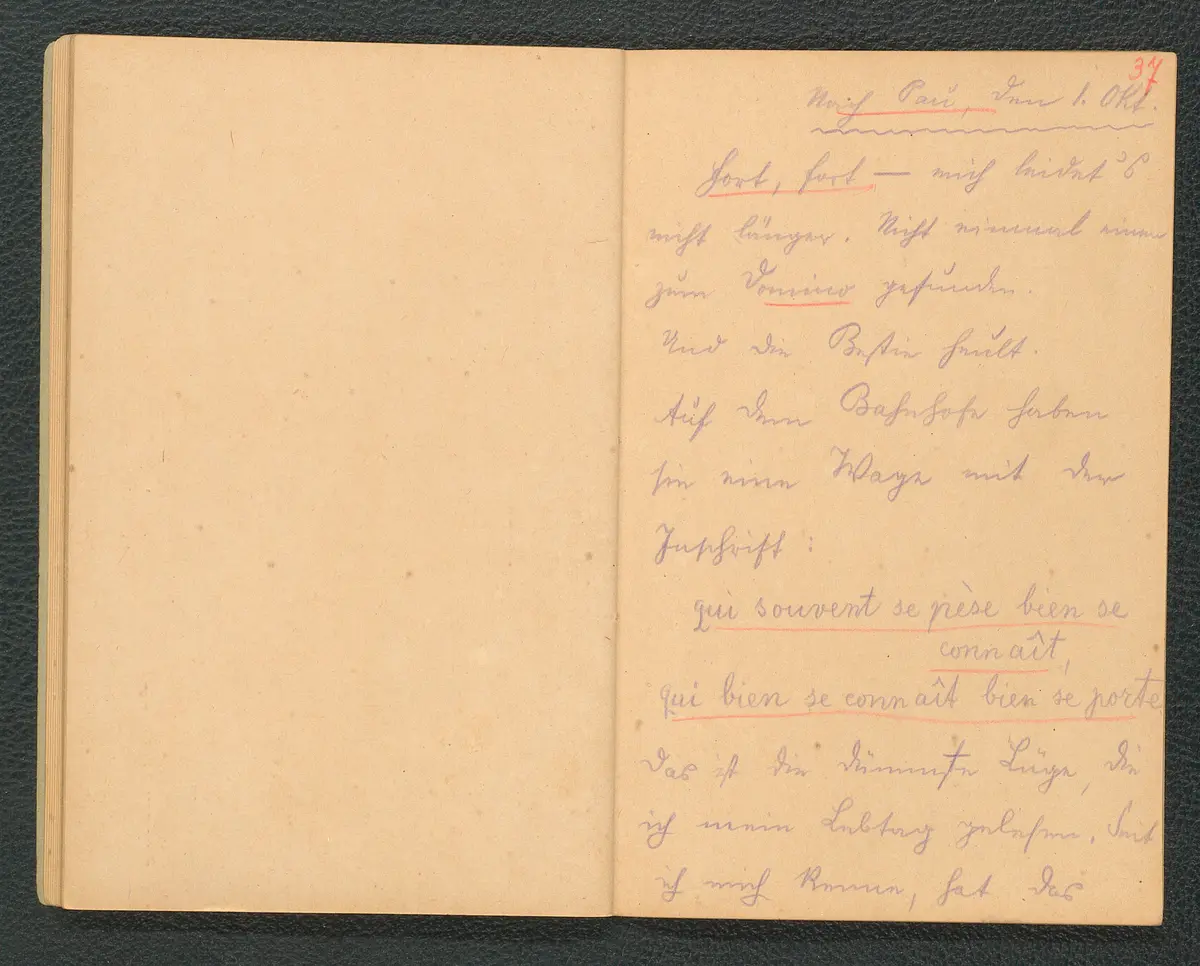 37
Nach Pau, den 1. Okt.
Fort, fort — mich leidet's
nicht länger. Nicht einmal einen
zum Domino gefunden.
Und die Bestie heult.
Auf dem Bahnhofe haben
sie eine Wage mit der
Inschrift:
qui souvent se pèse bien se
connaît,
qui bien se connaît bien se porte
Das ist die dümmste Lüge, die
ich mein Lebtag gelesen. Seit
ich mich kenne, hat das